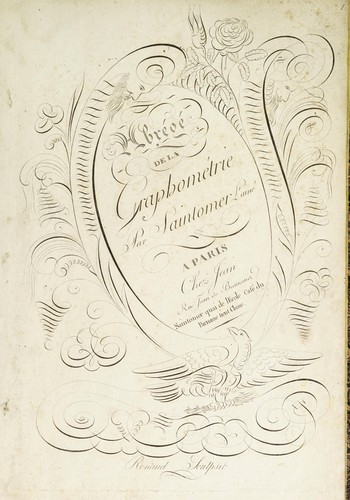 Abrégé
DE LA
Graphométrie
Par Saintomer L'ainé
A PARIS
Chez Jean
Rue Jean de Beauvais
Saintomer quai de l'École Café du
Parnasse